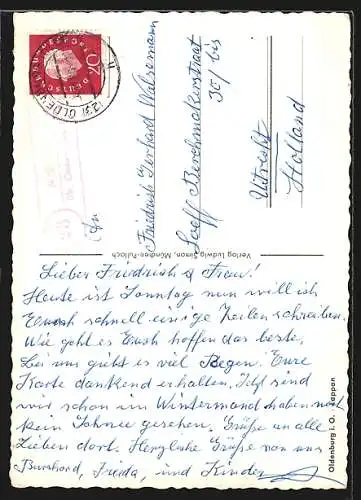 An
Friedrich Gerhard Walsemann
Loeff Berchmakerstraat
50/ bis
Utrecht
Holland
Verlag Ludwig Simon, München-Pullach
Oldenburg i. O. Lappan
DEUTSCHE BUNDESPOST
20
OLDENBURG
Lieber Friedrich & Frau!
Heute ist Sonntag nun will ich
Euch schnell einige Zeilen schreiben.
Wie geht es Euch hoffen das beste.
Bei uns giebt es viel Regen. Eure
Karte dankend erhalten. Jetzt sind
wir schon im Wintermonat haben noch
kein Schnee gesehen. Grüße an alle
Lieben dort. Herzliche Grüße von uns
Burchard, Frieda, und Kinder